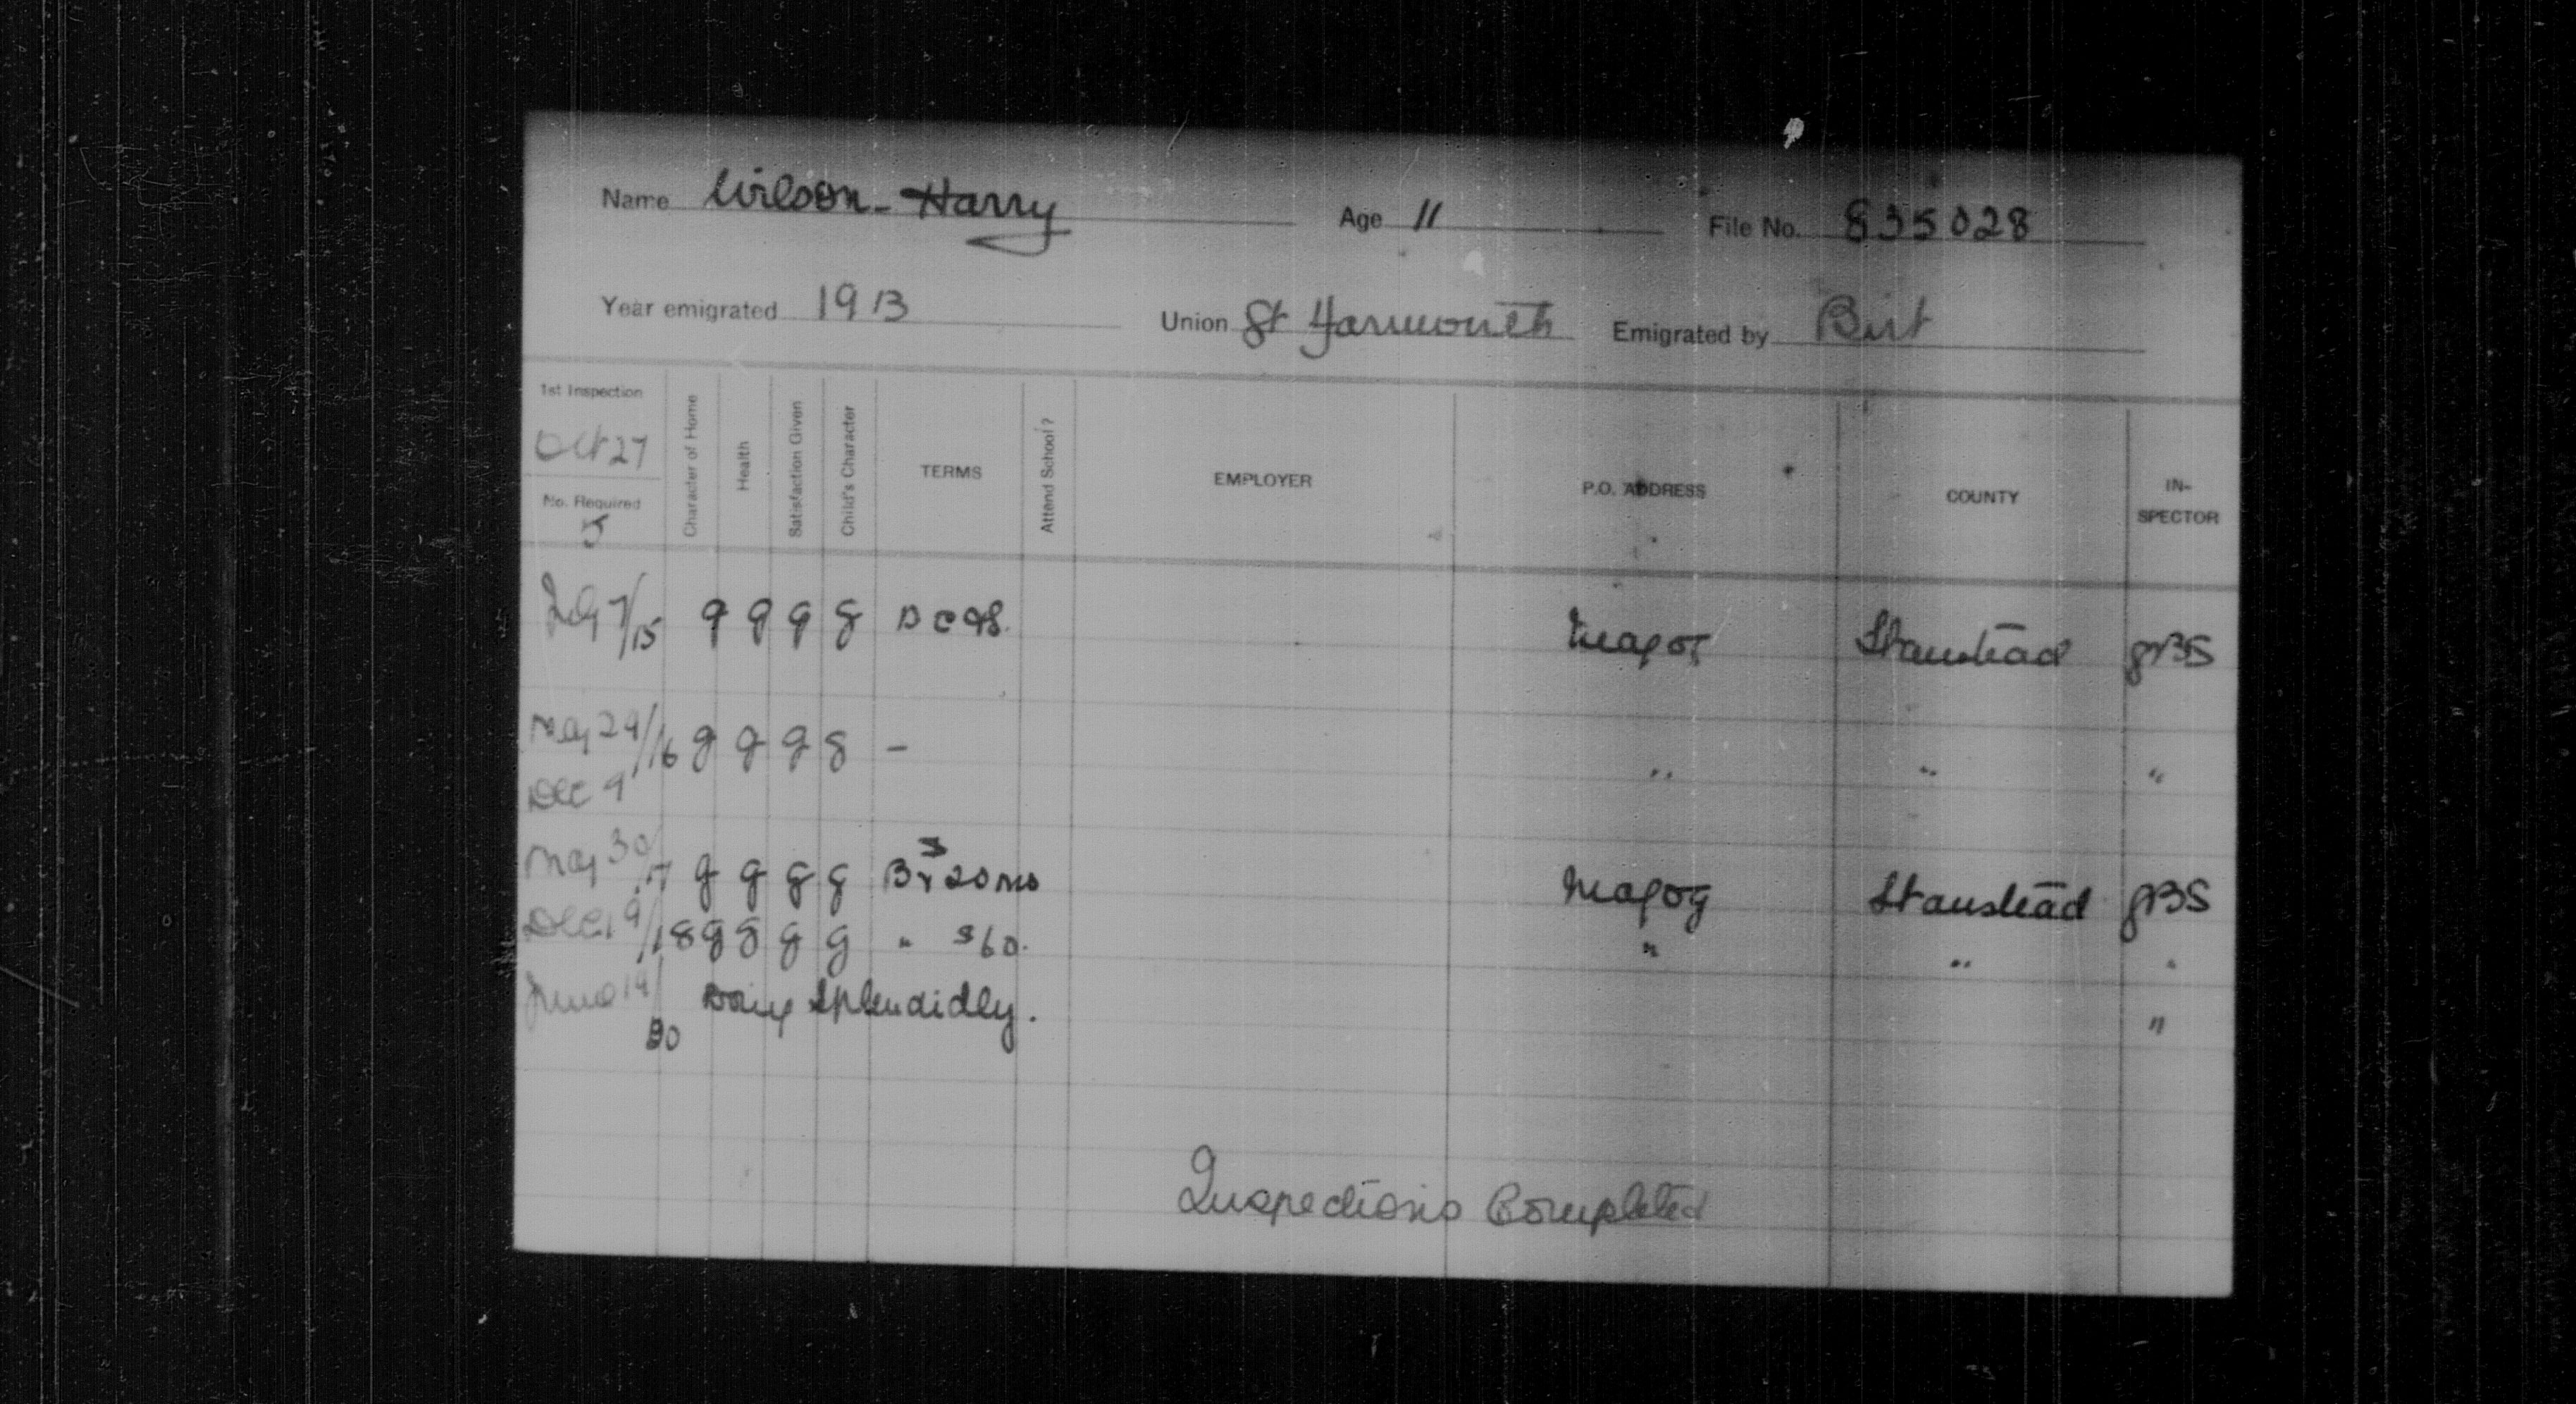 Name Wilson - Harry Age 11 File No. 835028
Year emigrated 1913 Union Gt Yarmouth Emigrated by Birt
1st Inspection
Oct 27
No. Required
5
Character of Home
Health
Satisfaction Given
Child's Character
TERMS
Attend School?
EMPLOYER
P.O. ADDRESS
COUNTY
IN-
SPECTOR
7/15 g g g g Magog Stanstead GBS
May 29/16 g g g g - " " "
Dec 9
May 30/17 g g g g Magog Stanstead GBS
Dec 19/18 g g g g " $60. " " "
June 19/20 Doing Splendidly. "
Inspections Completed